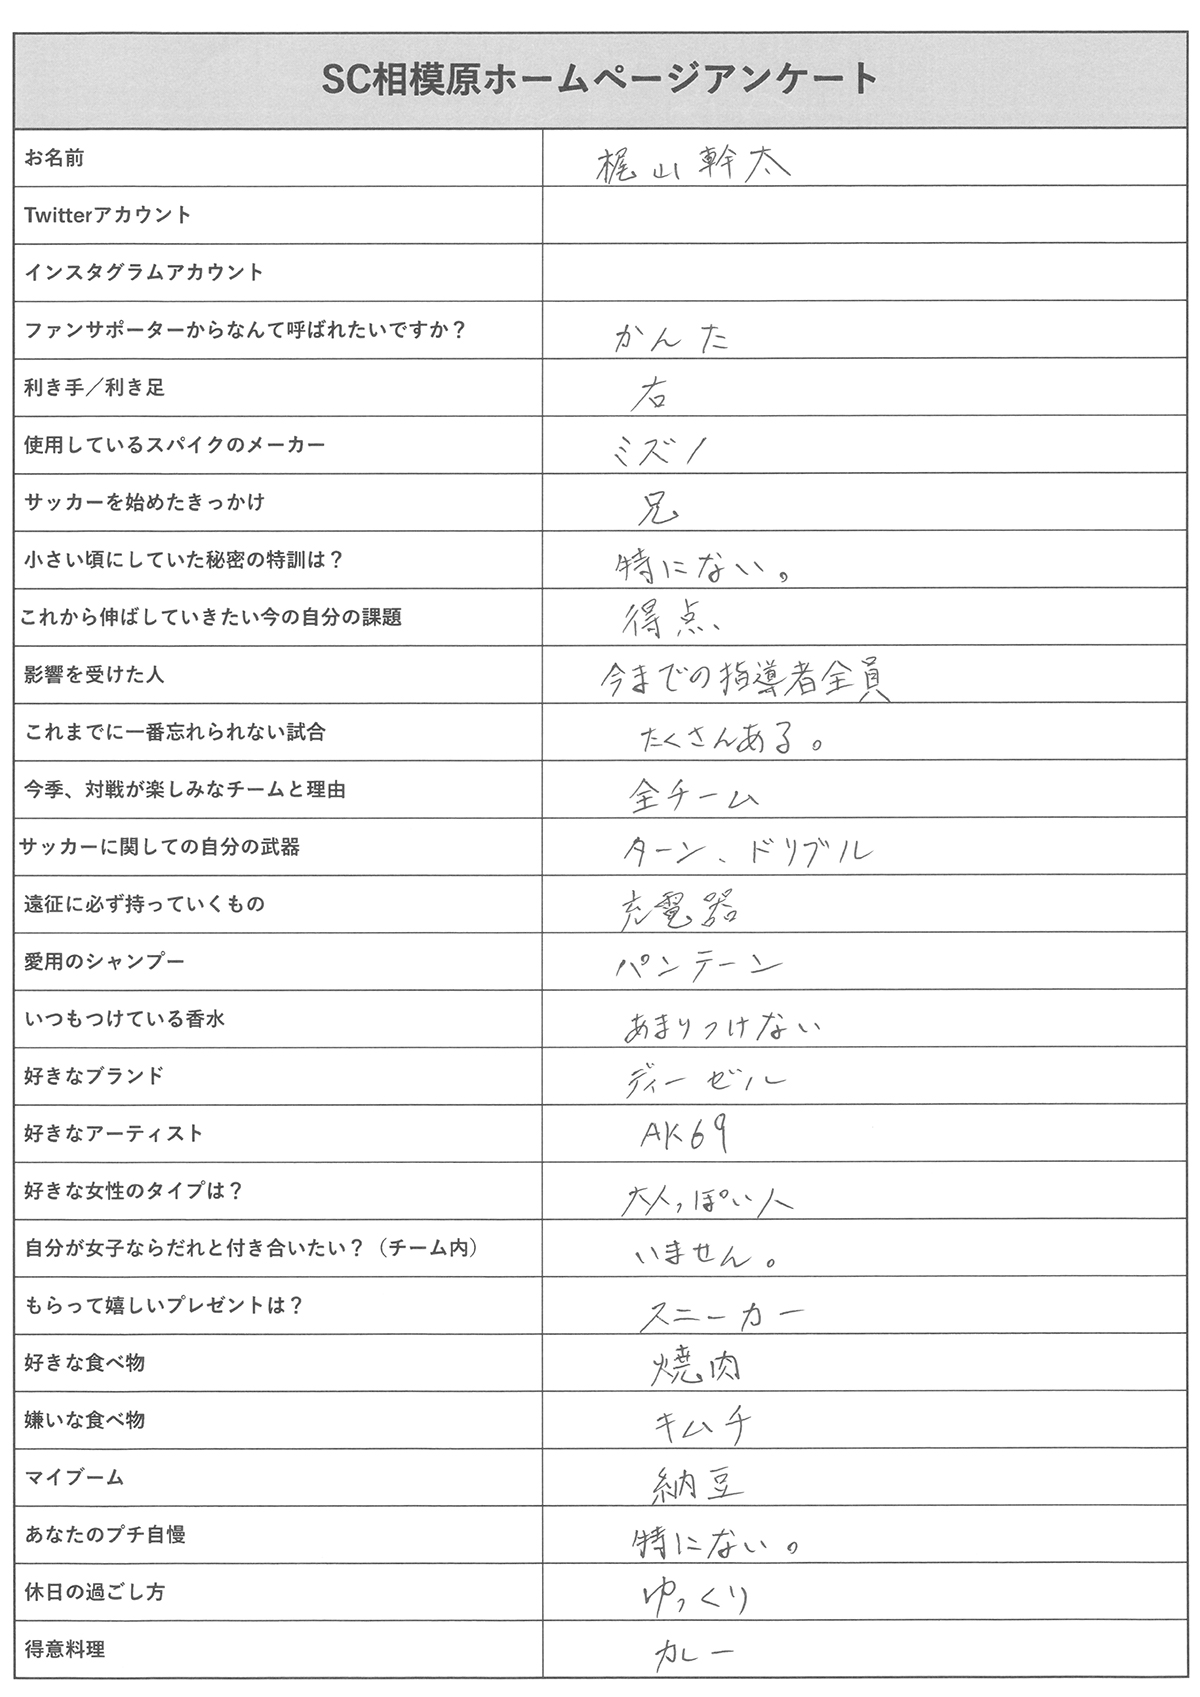 SC相模原ホームページアンケート
お名前 梶山幹太
Twitterアカウント
インスタグラムアカウント
ファンサポーターからなんて呼ばれたいですか？ かんた
利き手／利き足 右
使用しているスパイクのメーカー ミズノ
サッカーを始めたきっかけ 兄
小さい頃にしていた秘密の特訓は？ 特にない。
これから伸ばしていきたい今の自分の課題 得点、
影響を受けた人 今までの指導者全員
これまでに一番忘れられない試合 たくさんある。
今季、対戦が楽しみなチームと理由 全チーム
サッカーに関しての自分の武器 ターン、ドリブル
遠征に必ず持っていくもの 充電器
愛用のシャンプー パンテーン
いつもつけている香水 あまりつけない
好きなブランド ディーゼル
好きなアーティスト AK69
好きな女性のタイプは？ 大人っぽい人
自分が女子ならだれと付き合いたい？（チーム内） いません。
もらって嬉しいプレゼントは？ スニーカー
好きな食べ物 焼肉
嫌いな食べ物 キムチ
マイブーム 納豆
あなたのプチ自慢 特にない。
休日の過ごし方 ゆっくり
得意料理 カレー